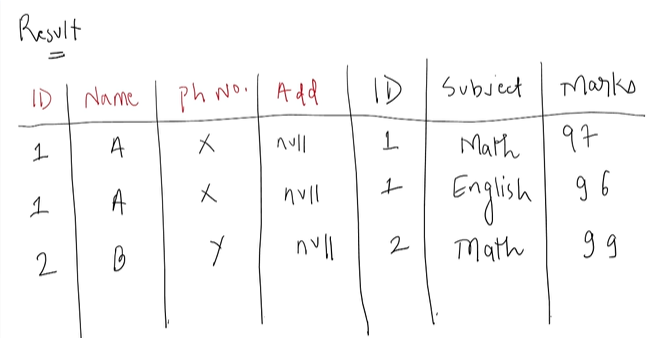 Result
ID Name Ph No. Add ID Subject Marks
1 A X null 1 Math 97
1 A X null 1 English 96
2 B Y null 2 Math 99